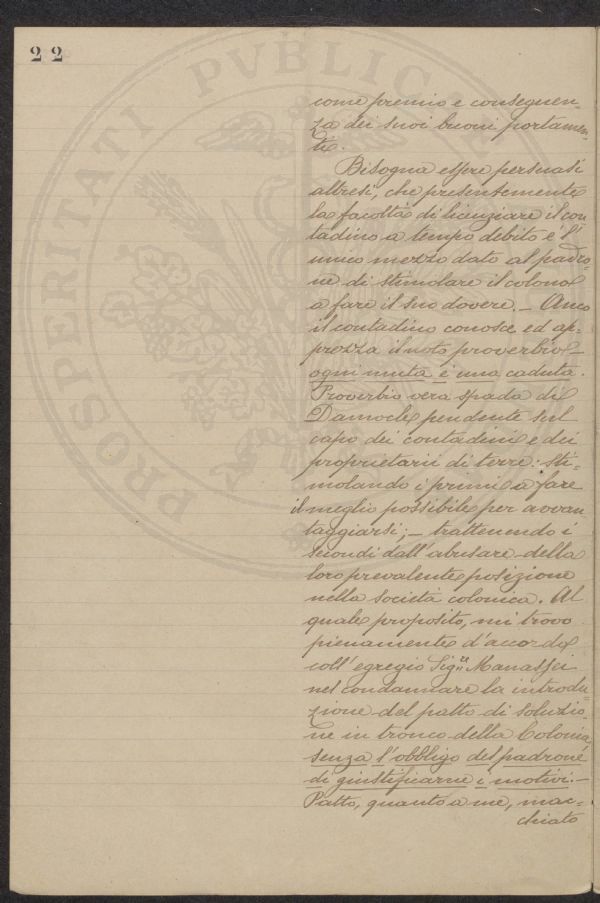 22
PROSPERITATI PVBLICAE
come premio e conseguen=
za dei suoi buoni portamen=
ti.
Bisogna essere persuasi
altresì, che presentemente
la facoltà di licenziare il con
tadino a tempo debito è l'
unico mezzo dato al padro=
ne di stimolare il colono
a fare il suo dovere. — Anco
il contadino conosce, ed ap=
prezza il noto proverbio —
ogni muta è una caduta.
Proverbio vera spada di
Damocle pendente sul
capo dei contadini e dei
proprietarii di terre: sti=
molando i primi a fare
il meglio possibile per avvan
taggiarsi; — trattenendo i
secondi dall'abusare della
loro prevalente posizione
nella società colonica. Al
quale proposito, mi trovo
pienamente d'accordo
coll'egregio Sig.re Manassei
nel condannare la introdu=
zione del patto di soluzio=
ne in tronco della Colonia
senza l'obbligo del padrone
di giustificarne i motivi. —
Patto, quanto a me, mac=
chiato